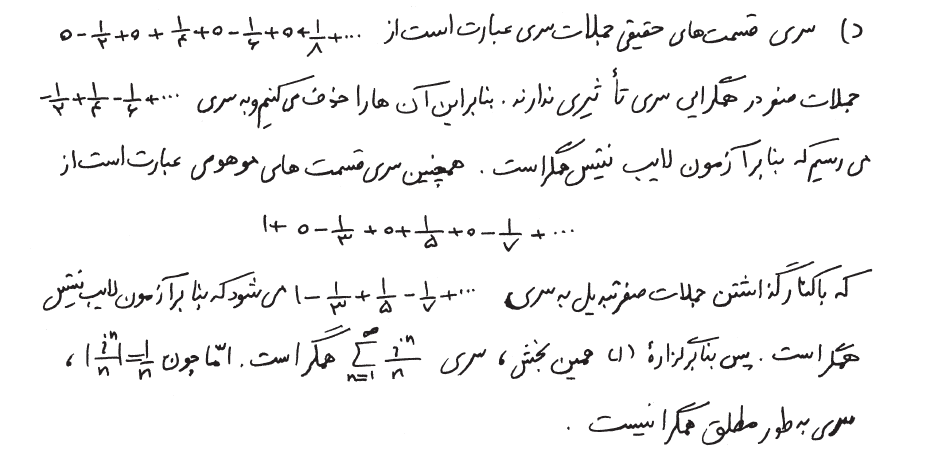 د) سری قسمت‌های حقیقی جملات سری عبارت است از ۰ - ۱/۲ + ۰ + ۱/۴ + ۰ - ۱/۶ + ۰ + ۱/۸ + ...
جملات صفر در همگرایی سری تأثیری ندارند. بنابراین آن‌ها را حذف می‌کنیم و به سری -۱/۲ + ۱/۴ - ۱/۶ + ...
می‌رسیم که بنابر آزمون لایب نیتس همگراست. همچنین سری قسمت‌های موهومی عبارت است از
۱ + ۰ - ۱/۳ + ۰ + ۱/۵ + ۰ - ۱/۷ + ...
که با کنار گذاشتن جملات صفر تبدیل به سری ۱ - ۱/۳ + ۱/۵ - ۱/۷ + ... می‌شود که بنابر آزمون لایب نیتس
همگرا است. پس بنابر گزارهٔ (۱) همین بخش، سری ∑_{n=1}^{∞} i^n/n همگرا است. امّا چون |i^n/n| = 1/n،
سری به طور مطلق همگرا نیست.